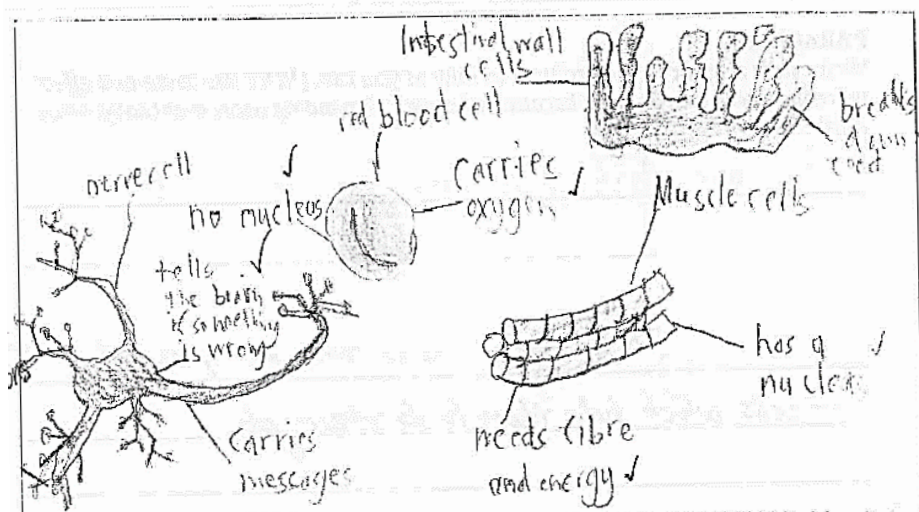 Intestinal wall
cells
red blood cell
breaks
down
nerve cell
no nucleus
carries
oxygen
Muscle cells
tells
the brain
if something
is wrong
has a
carries
messages
needs fibre
and energy